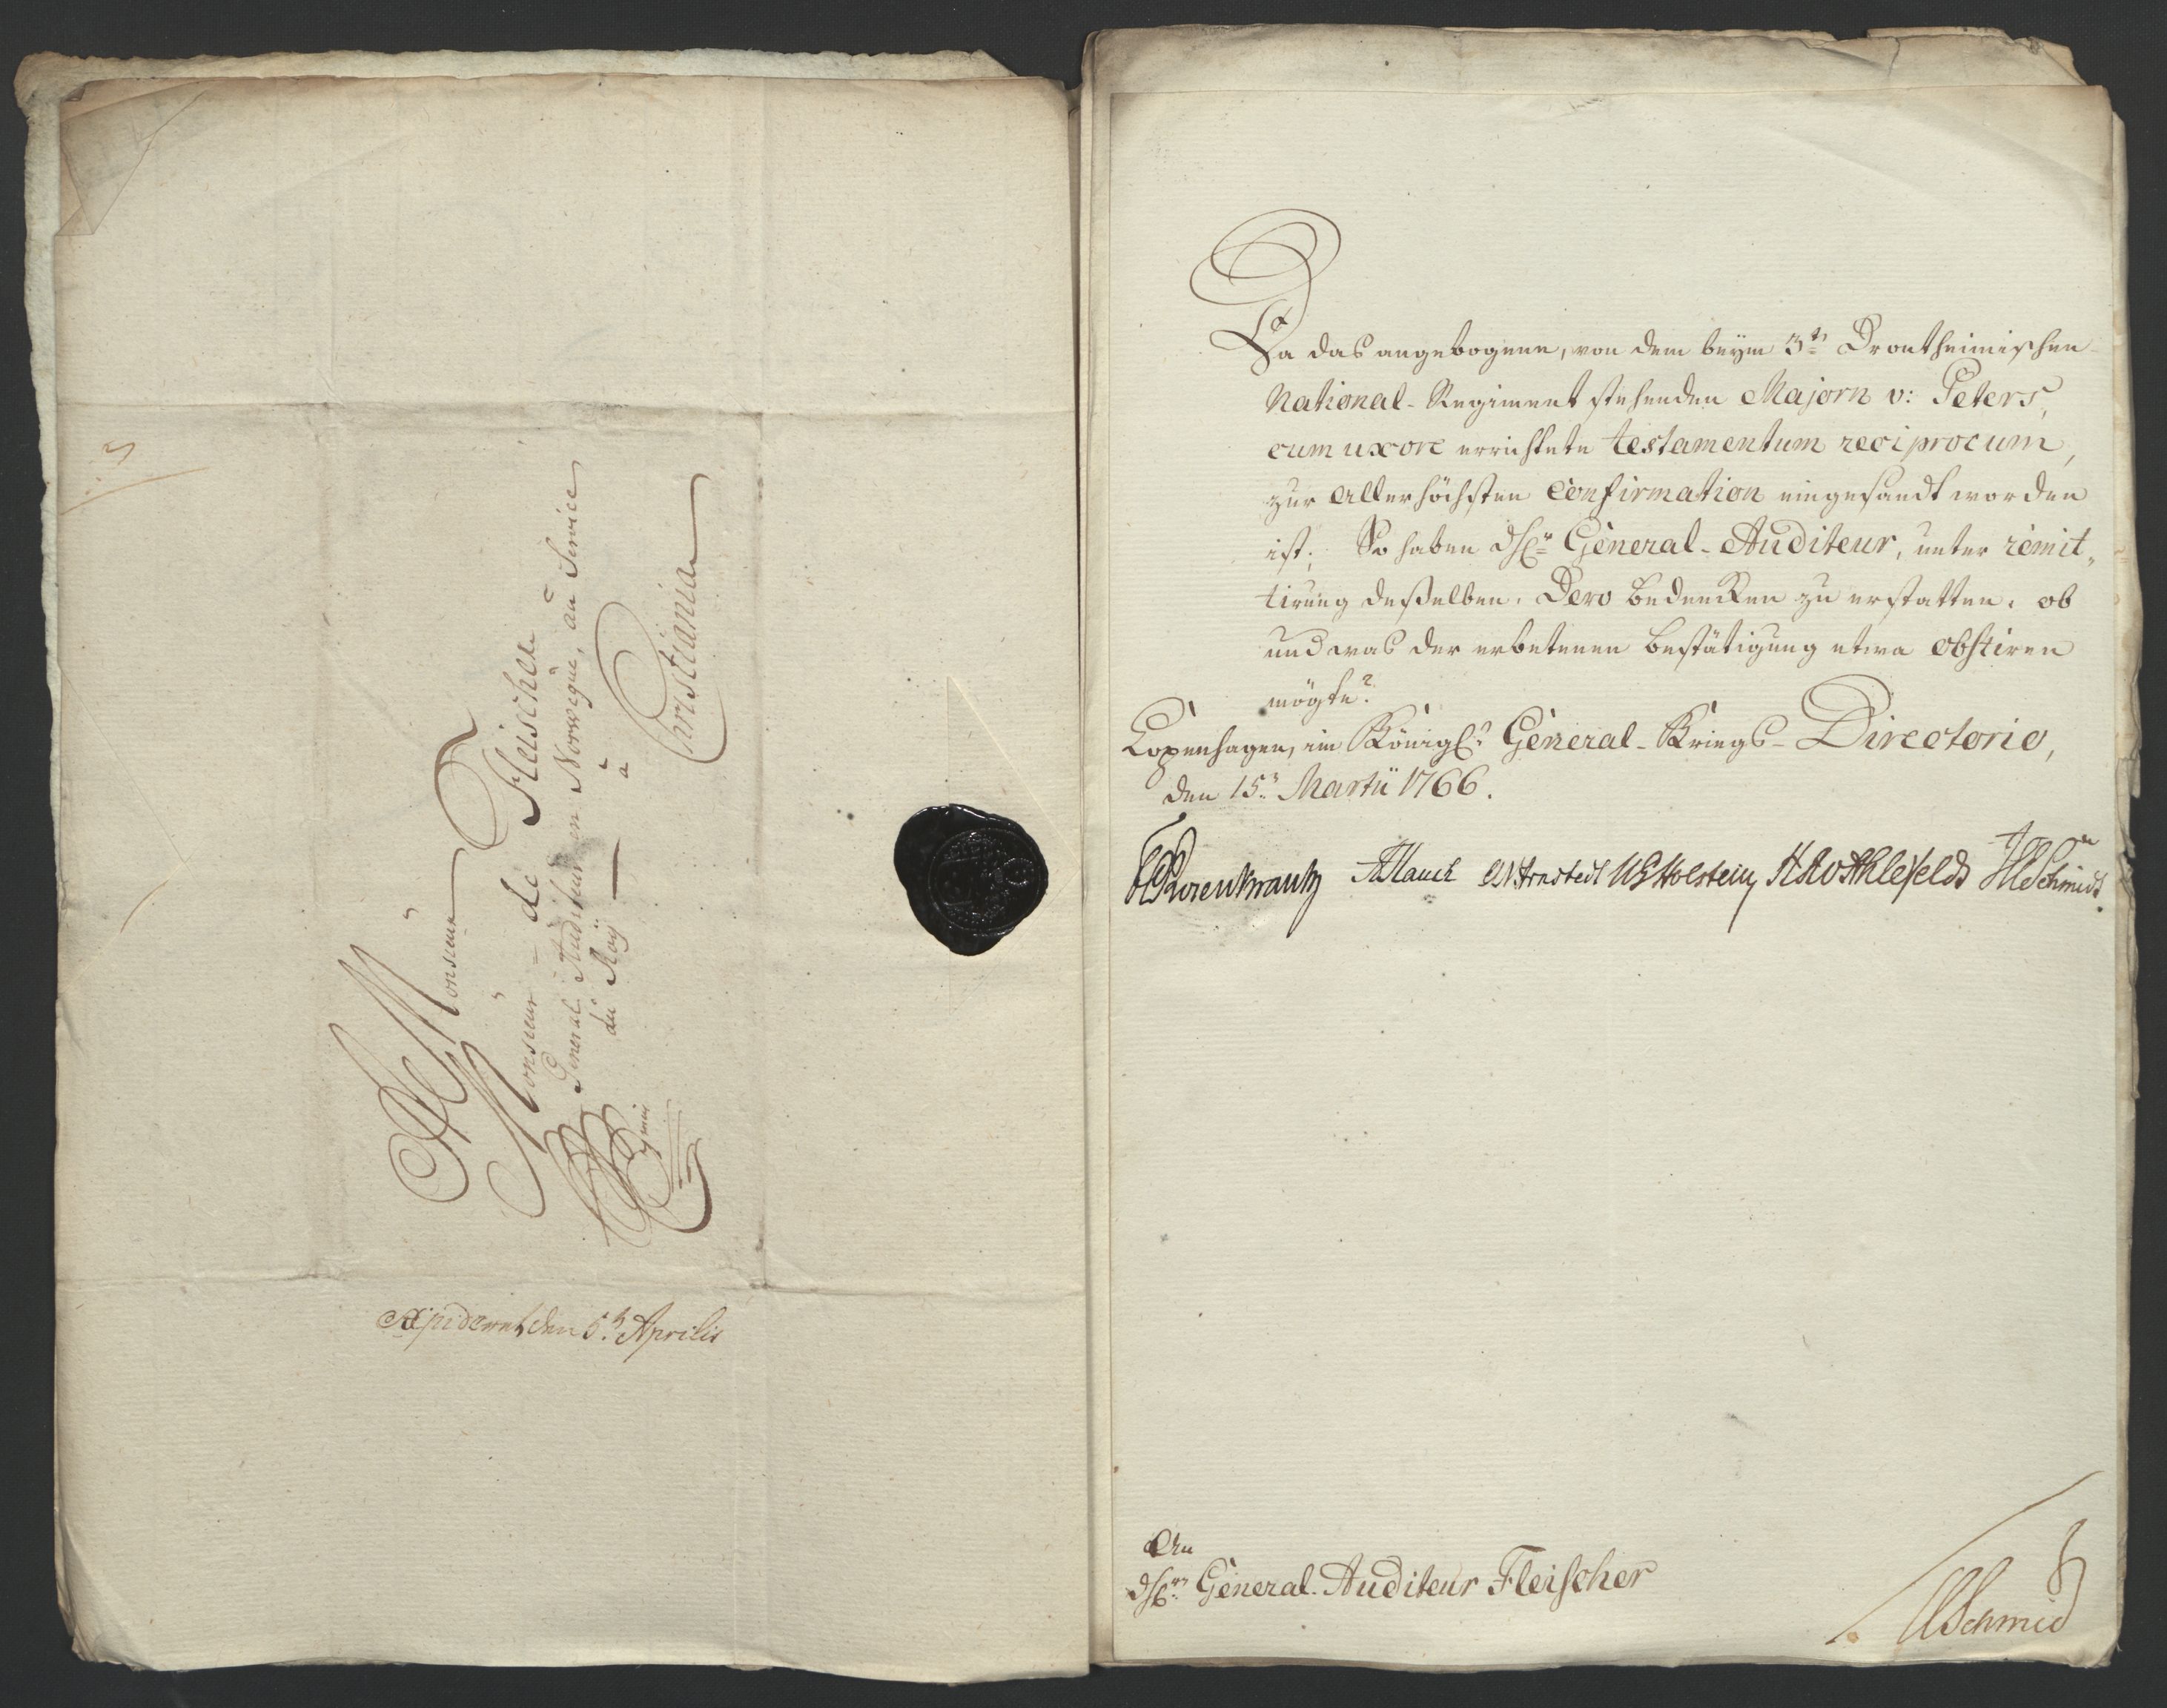 A Monsieur
Monsieur de Fleischer
General Auditeur en Norwegue, au Service
du Roÿ à
Christiania
Expideret den 5t Aprilis
Da das angebogene, von dem beym 3ten Drontheimischen
National-Regiment stehenden Majorn v: Peters,
cum uxore errichtete testamentum reciprocum,
zur Allerhöchsten Confirmation eingesandt worden
ist; So haben dH: General-Auditeur, unter remit„
tirung deßelben, Dero Bedencken zu erstatten, ob
und was der erbetenen Bestätigung etwa obstiren
mögte?
Copenhagen, im Königl: General-Kriegs-Directorio,
den 15n Martii 1766.
Rosenkrantz Hauch Arnstedt Holstein Ahlefeldt Schmidt
An
General-Auditeur Fleischer
Schmid